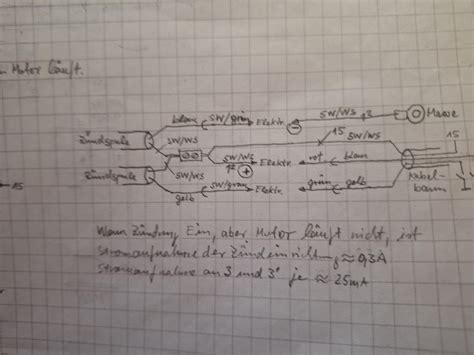 Motor läuft.
blau SW/grün Elektr. SW/WS 3 Masse
Zündspule SW/WS 15 SW/WS
SW/WS Elektr. rot blau
Zündspule SW/WS grün gelb Kabel-
15 gelb SW/grün Elektr. baum
Wenn Zündung Ein, aber Motor läuft nicht, ist
Stromaufnahme der Zündeinrichtg ≈ 0,3A
Stromaufnahme an 3 und 3' je ≈ 25mA